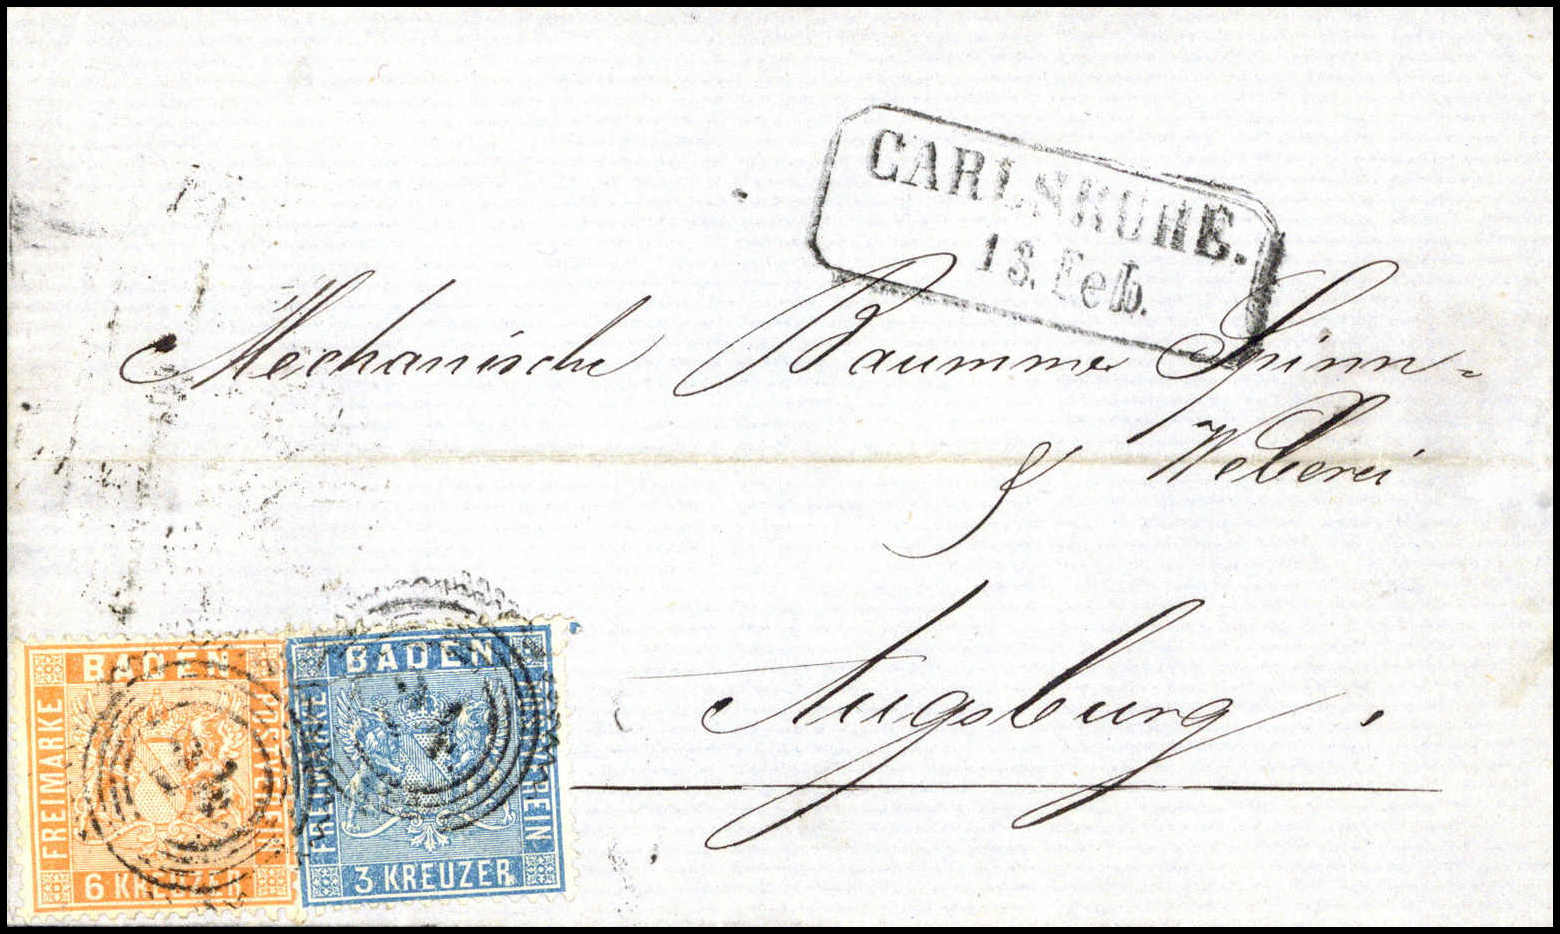 CARLSRUHE.
13. Feb.
Mechanische Baumm Spinn-
& Weberei
Augsburg.
BADEN
FREIMARKE
POSTVEREIN
6 KREUZER
BADEN
FREIMARKE
POSTVEREIN
3 KREUZER
24
24